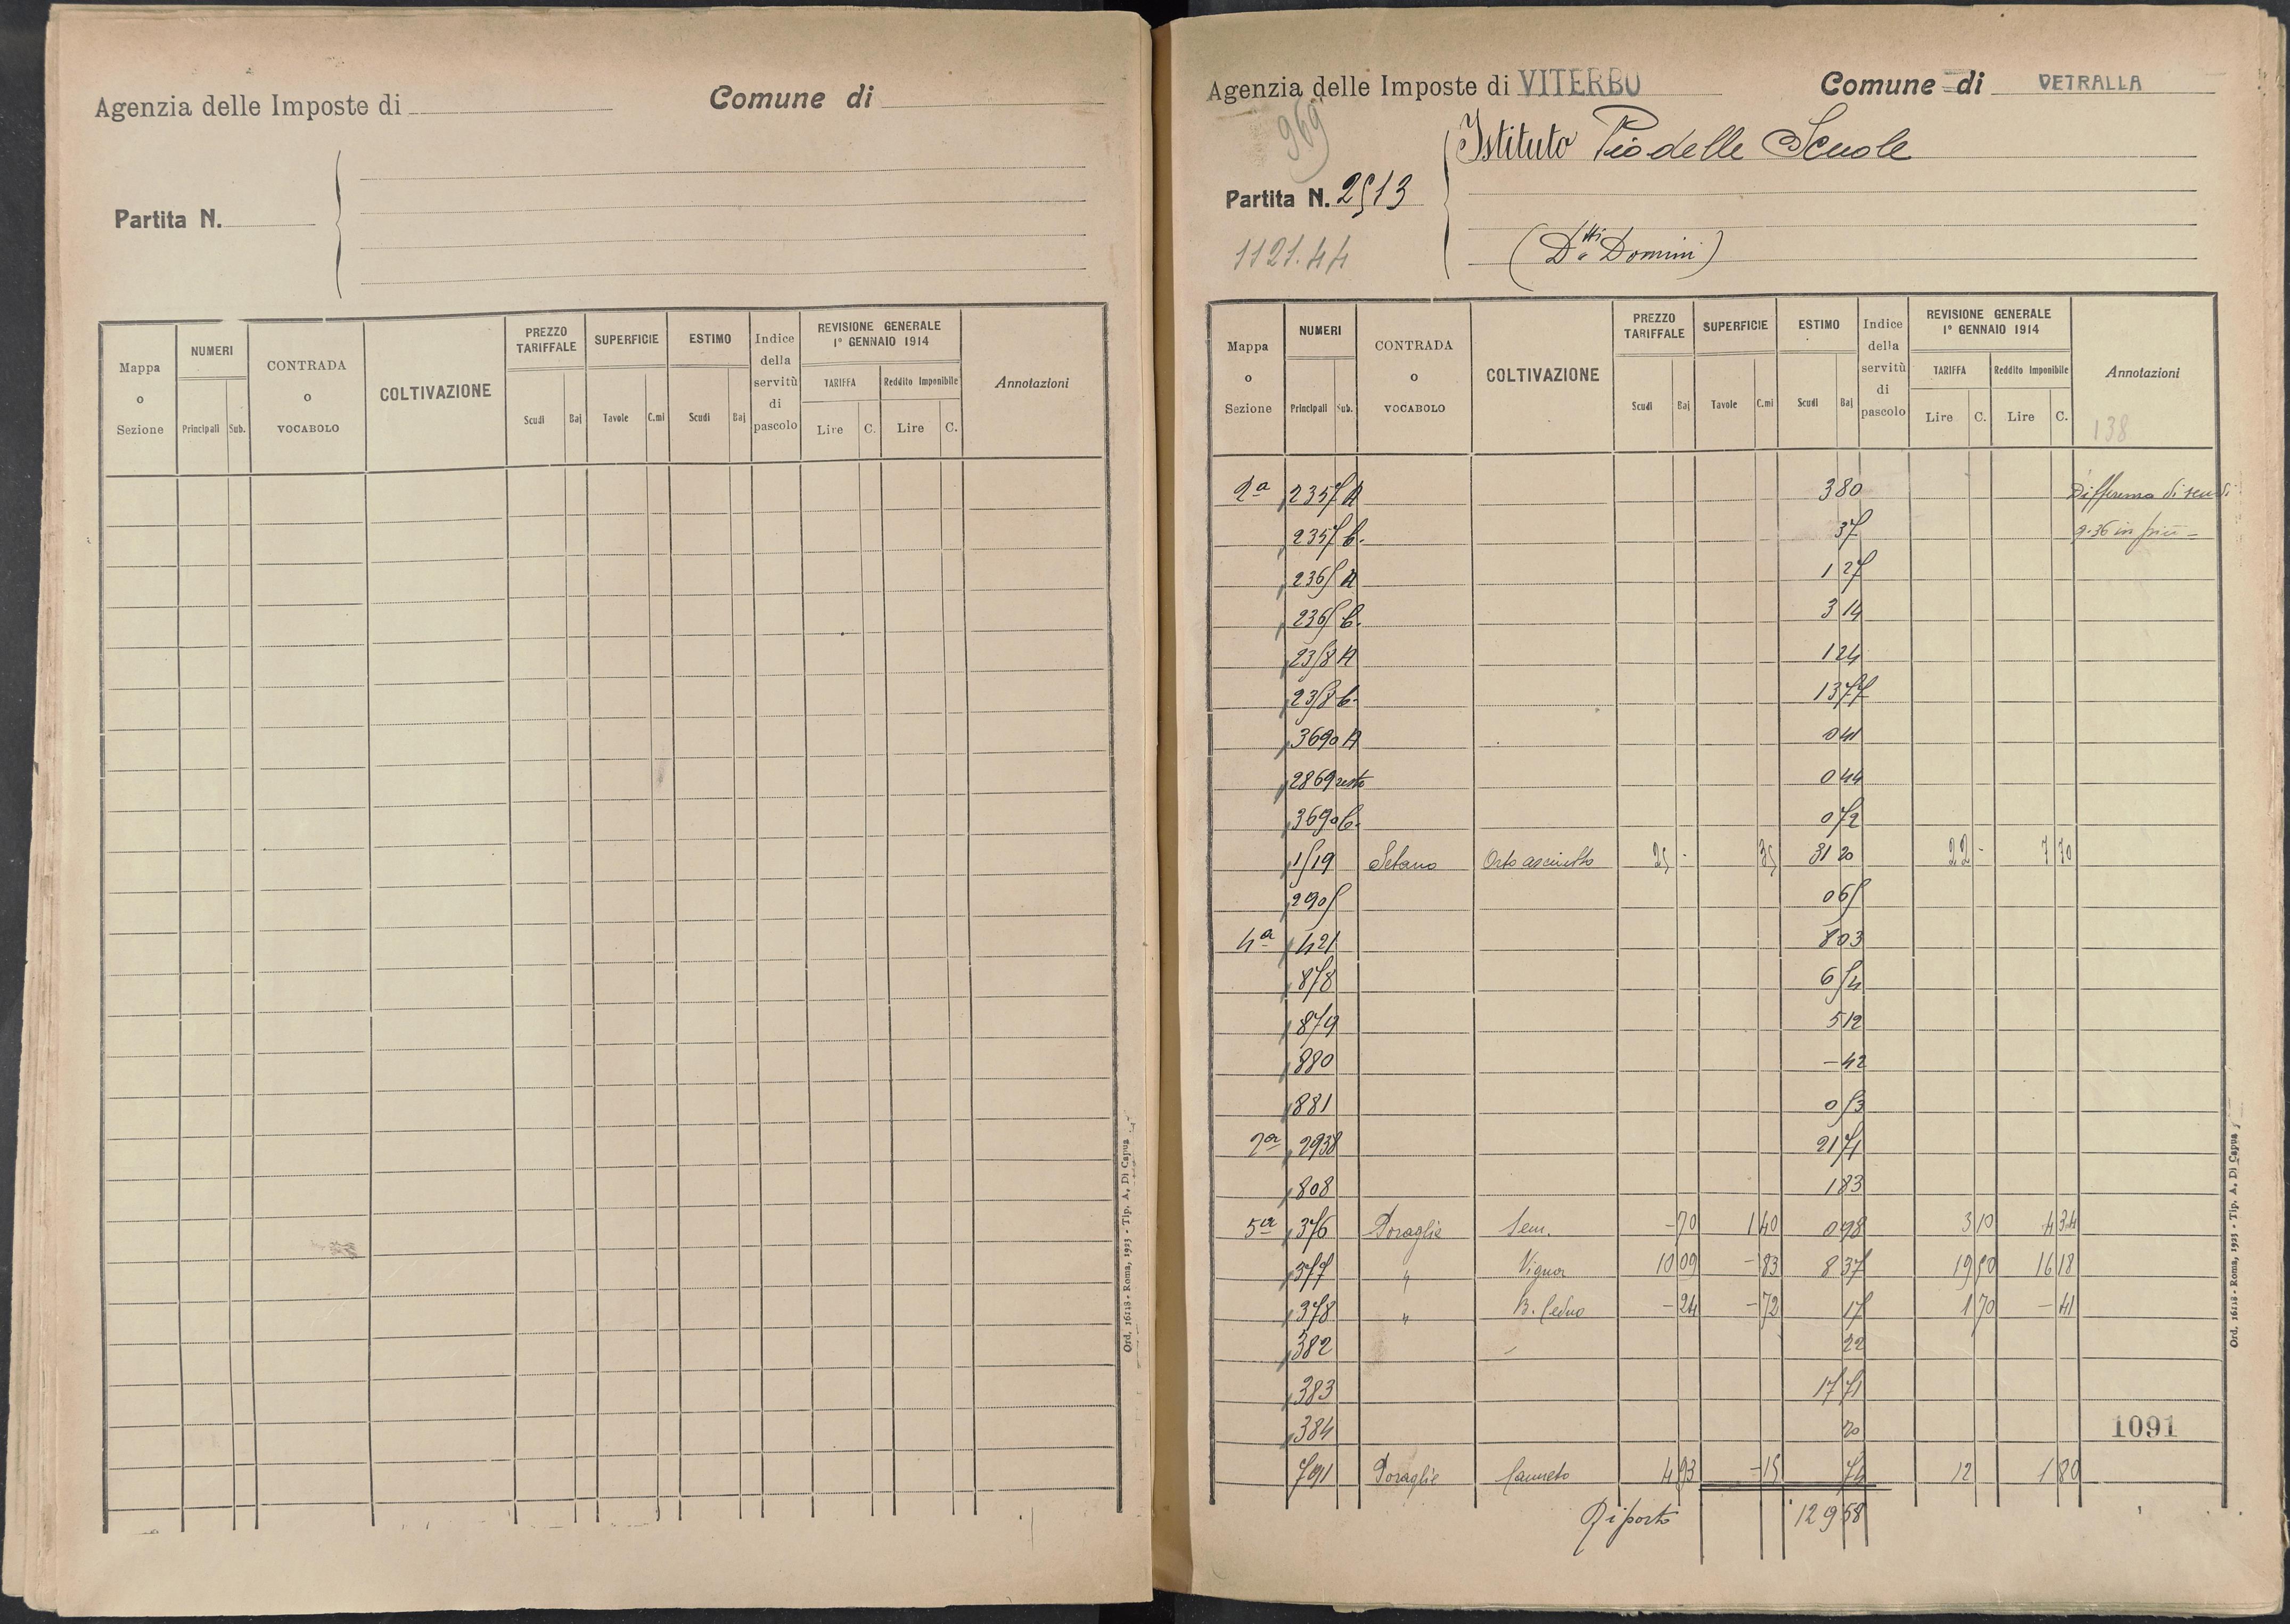 Agenzia delle Imposte di
Comune di
Partita N.
Mappa o Sezione
NUMERI
Principali Sub.
CONTRADA o VOCABOLO
COLTIVAZIONE
PREZZO TARIFFALE
Scudi Baj
SUPERFICIE
Tavole C.mi
ESTIMO
Scudi Baj
Indice della servitù di pascolo
REVISIONE GENERALE
1° GENNAIO 1914
TARIFFA Reddito Imponibile
Lire C. Lire C.
Annotazioni
Ord. 16118 - Roma, 1923 - Tip. A. Di Capua
Agenzia delle Imposte di VITERBO
Comune di VETRALLA
969
Istituto Pio delle Scuole
Partita N. 2513
1121.44
(D.tti Domini)
Mappa o Sezione
NUMERI
Principali Sub.
CONTRADA o VOCABOLO
COLTIVAZIONE
PREZZO TARIFFALE
Scudi Baj
SUPERFICIE
Tavole C.mi
ESTIMO
Scudi Baj
Indice della servitù di pascolo
REVISIONE GENERALE
1° GENNAIO 1914
TARIFFA Reddito Imponibile
Lire C. Lire C.
Annotazioni
138
2a 2357 A 3 80 Differenza di scudi
2357 b. 37 9.36 in più -
2365 A 1 27
2365 b. 3 14
2358 A 1 24
2358 b. 13 77
3690 A 0 41
2869 resto 0 44
3690 b. 0 72
1519 Setano Orto asciutto 25 - 35 31 20 22 - 7 70
2905 0 65
4a 421 8 03
878 6 54
879 5 12
880 - 42
881 0 53
2a 2938 21 71
808 1 83
5a 376 Poraglie Sem. - 70 1 40 0 98 3 10 4 34
377 " Vigna 10 09 - 83 8 37 19 50 16 18
378 " B. Ceduo - 24 - 72 17 1 70 - 41
382 22
383 17 71
384 20
791 Poraglie Canneto 4 93 - 15 74 12 1 80
1091
Riporto 129 58
Ord. 16118 - Roma, 1923 - Tip. A. Di Capua